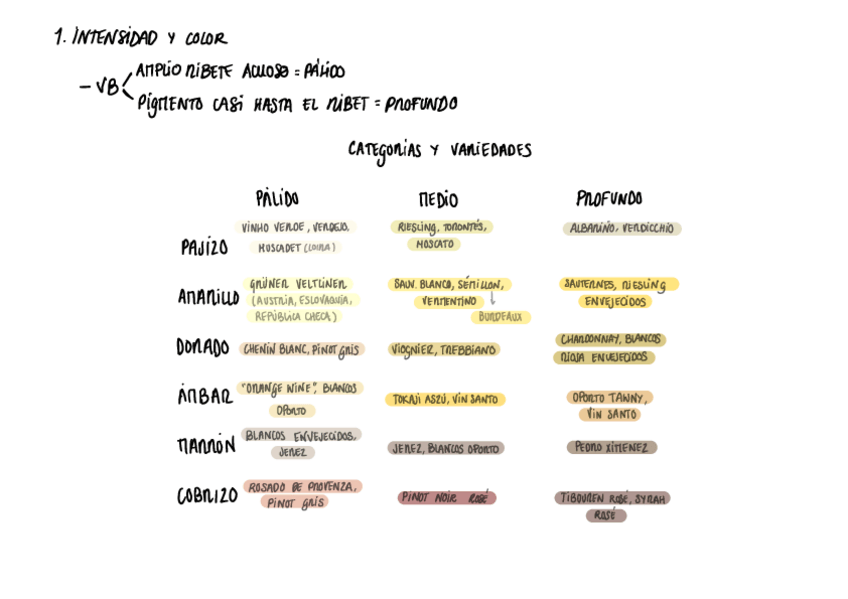 1. INTENSIDAD Y COLOR
AMPLIO RIBETE ACUOSO = PÁLIDO
- VB
PIGMENTO CASI HASTA EL RIBET = PROFUNDO
CATEGORÍAS Y VARIEDADES
PÁLIDO MEDIO PROFUNDO
PAJIZO
VINHO VERDE, VERDEJO,
MUSCADET (LOIRA)
RIESLING, TORONTÉS,
MOSCATO
ALBARIÑO, VERDICCHIO
AMARILLO
GRÜNER VELTLINER
(AUSTRIA, ESLOVAQUIA,
REPÚBLICA CHECA)
SAUV. BLANCO, SÉMILLON,
VERMENTINO ↓
BURDEAUX
SAUTERNES, RIESLING
ENVEJECIDOS
DORADO
CHENIN BLANC, PINOT GRIS
VIOGNIER, TREBBIANO
CHARDONNAY, BLANCOS
RIOJA ENVEJECIDOS
ÁMBAR
"ORANGE WINE", BLANCOS
OPORTO
TOKAJI ASZÚ, VIN SANTO
OPORTO TAWNY,
VIN SANTO
MARRÓN
BLANCOS ENVEJECIDOS,
JEREZ
JEREZ, BLANCOS OPORTO
PEDRO XIMENEZ
COBRIZO
ROSADO DE PROVENZA,
PINOT GRIS
PINOT NOIR ROSÉ
TIBOUREN ROSÉ, SYRAH
ROSÉ